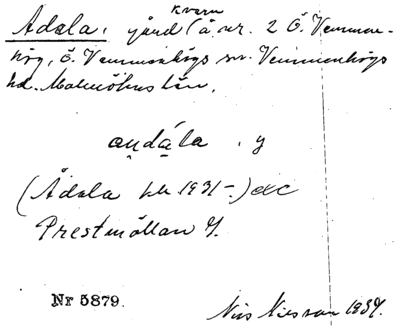 Ådala, gård (å nr. 2 Ö. Vemmen-
kvarn
hög, Ö. Vemmenhögs sn. Vemmenhögs
hd. Malmöhus län.
ọndála . y
(Ådala hk 1931-.) etc
Prestmöllan y.
Nr 5879.
Nils Nilsson 1934.